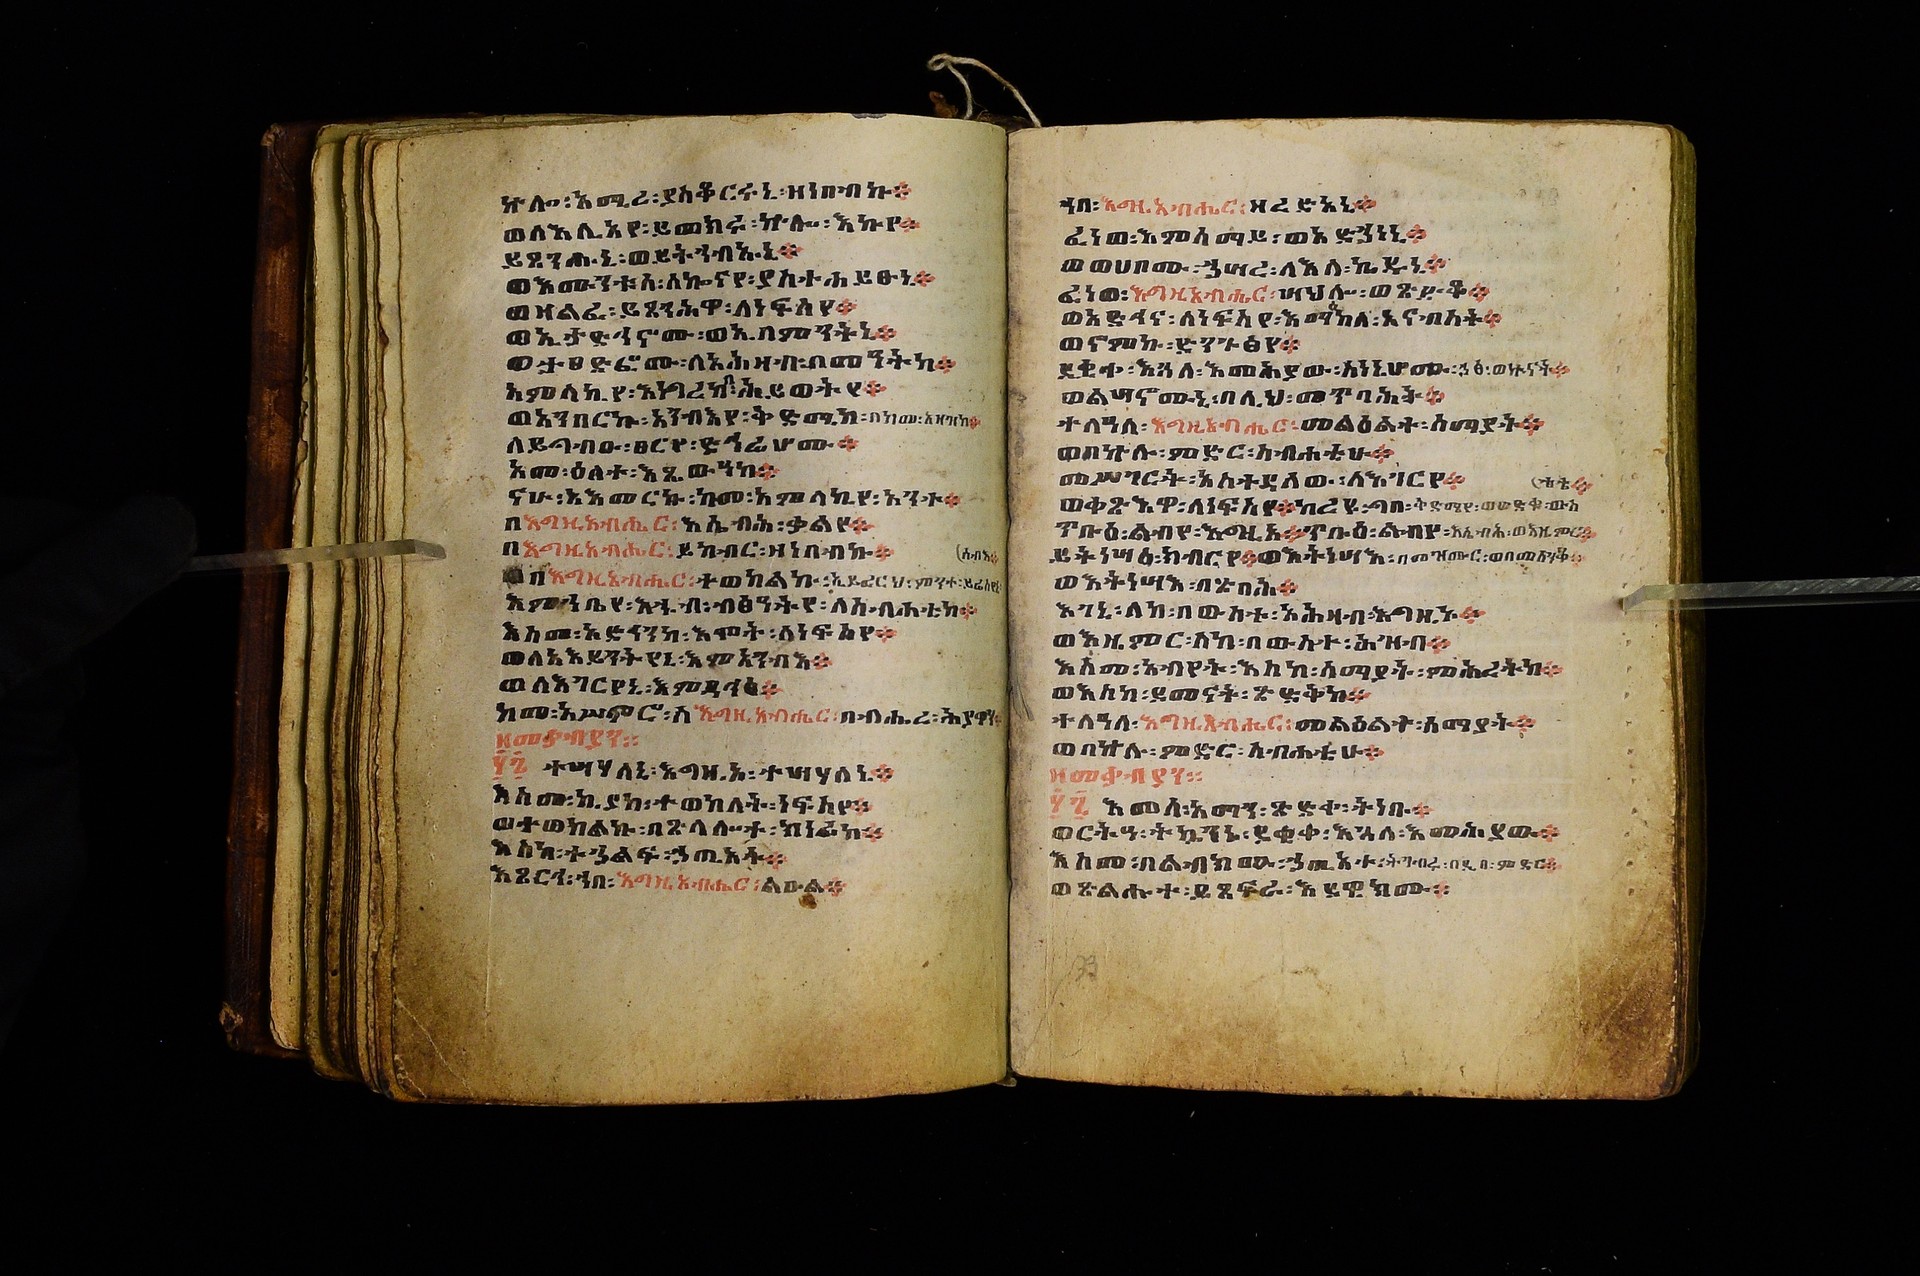 ኵሎ፡አሚረ፡ያስቆርሩኒ፡ዘነበብኩ።
ወላእሌየ፡ይመክሩ፡ኵሎ፡እኩየ።
ይጸንሑኒ፡ወይትኀብኡኒ።
ወእሙንቱሰ፡ሰኰናየ፡ያስተሐይፁኒ።
ወዛልፈ፡ይጸንሕዋ፡ለነፍስየ።
ወኢታድኅኖሙ፡ወኢበምንትኒ።
ወታፀድፎሙ፡ለአሕዛብ፡በመዓትከ።
አምላኪየ፡እነግረከ፡ሕይወትየ።
ወአንበርኩ፡አንብዕየ፡ቅድሜከ፡በከመ፡አዘዝከ።
ለይግብኡ፡ፀርየ፡ድኅሬሆሙ።
አመ፡ዕለተ፡እጼውዓከ።
ናሁ፡አእመርኩ፡ከመ፡አምላኪየ፡አንተ።
በእግዚአብሔር፡እሴብሕ፡ቃልየ።
በእግዚአብሔር፡ይከብር፡ዘነበብኩ።
በእግዚአብሔር፡ተወከልኩ፡ኢይፈርህ፡ምንተ፡ይሬስየኒ፡(ሰብእ።
እምኀቤየ፡እሁብ፡ብፅዓትየ፡ለስብሐቲከ።
እስመ፡አድኀንካ፡እሞት፡ለነፍስየ።
ወለአእይንትየኒ፡እምአንብዕ።
ወለእገርየኒ፡እምዳኅፅ።
ከመ፡አሥምሮ፡ለእግዚአብሔር፡በብሔረ፡ሕያዋን።
ዘመቃብያን።
፶፮ ተሣሃለኒ፡እግዚኦ፡ተሣሃለኒ።
እስመ፡ኪያከ፡ተወከለት፡ነፍስየ።
ወተወከልኩ፡በጽላሎተ፡ክነፊከ።
እስከ፡ተኀልፍ፡ኃጢአት።
እጸርኅ፡ኀበ፡እግዚአብሔር፡ልዑል።
ኀበ፡እግዚአብሔር፡ዘረድአኒ።
ፈነወ፡እምሰማይ፡ወአድኀነኒ።
ወወሀቦሙ፡ኃሣረ፡ለእለ፡ኬዱኒ።
ፈነወ፡እግዚአብሔር፡ሣህሎ፡ወጽድቆ።
ወአድኀና፡ለነፍስየ፡እማእከለ፡አናብስት።
ወኖምኩ፡ድንጉፅየ።
ደቂቀ፡እጓለ፡እመሕያው፡ስነኒሆሙ፡ኃፅ፡ወኲናት።
ወልሣኖሙኒ፡በሊህ፡መጥባሕት።
ተለዓለ፡እግዚአብሔር፡መልዕልተ፡ሰማያት።
ወበኵሉ፡ምድር፡ስብሐቲሁ።
መሥገርት፡አስተዳለወ፡ለእገርየ።
ወቀጽእዋ፡ለነፍስየ።ከረዩ፡ግበ፡ቅድሜየ፡ወወድቁ፡ውስ(ቴቱ።
ጥቡዕ፡ልብየ፡እግዚኦ።ጥቡዕ፡ልብየ፡እሴብሕ፡ወእዜምር።
ይትነሣዕ፡ክብርየ።ወእትነሣእ፡በመዝሙር፡ወበመሰንቆ።
ወእትነሣእ፡በጽባሕ።
እገኒ፡ለከ፡በውስተ፡አሕዛብ፡እግዚኦ።
ወእዜምር፡ለከ፡በውስተ፡ሕዝብ።
እስመ፡ዐብየት፡እስከ፡ሰማያት፡ምሕረትከ።
ወእስከ፡ደመናት፡ጽድቅከ።
ተለዓለ፡እግዚአብሔር፡መልዕልተ፡ሰማያት።
ወበኵሉ፡ምድር፡ስብሐቲሁ።
ዘመቃብያን።
፶፯ እመሰ፡አማን፡ጽድቀ፡ትነቡ።
ወርትዓ፡ትኴንኑ፡ደቂቀ፡እጓለ፡እመሕያው።
እስመ፡በልብክሙ፡ኃጢአተ፡ትገብሩ፡በዲበ፡ምድር።
ወጽልሑተ፡ይጸፍራ፡እደዊክሙ።